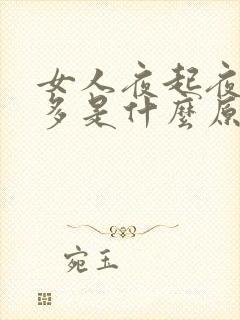 女人夜起夜
多是什麼原
宛玉